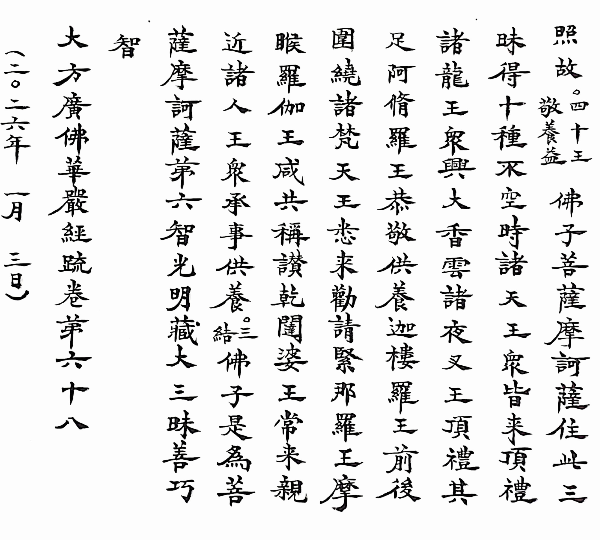 照故。四十王敬養益 佛子菩薩摩訶薩住此三
昧得十種不空時諸天王衆皆来頂禮
諸龍王衆興大香雲諸夜叉王頂禮其
足阿脩羅王恭敬供養迦樓羅王前後
圍繞諸梵天王悉来勸請緊那羅王摩
睺羅伽王咸共稱讃乾闥婆王常来親
近諸人王衆承事供養。三結佛子是為菩
薩摩訶薩第六智光明藏大三昧善巧
智
大方廣佛華嚴經疏卷第六十八
（二。二六年 一月 三日）